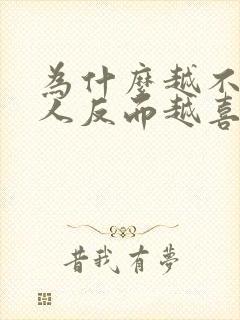 為什麼越不
人反而越喜
昔我有夢